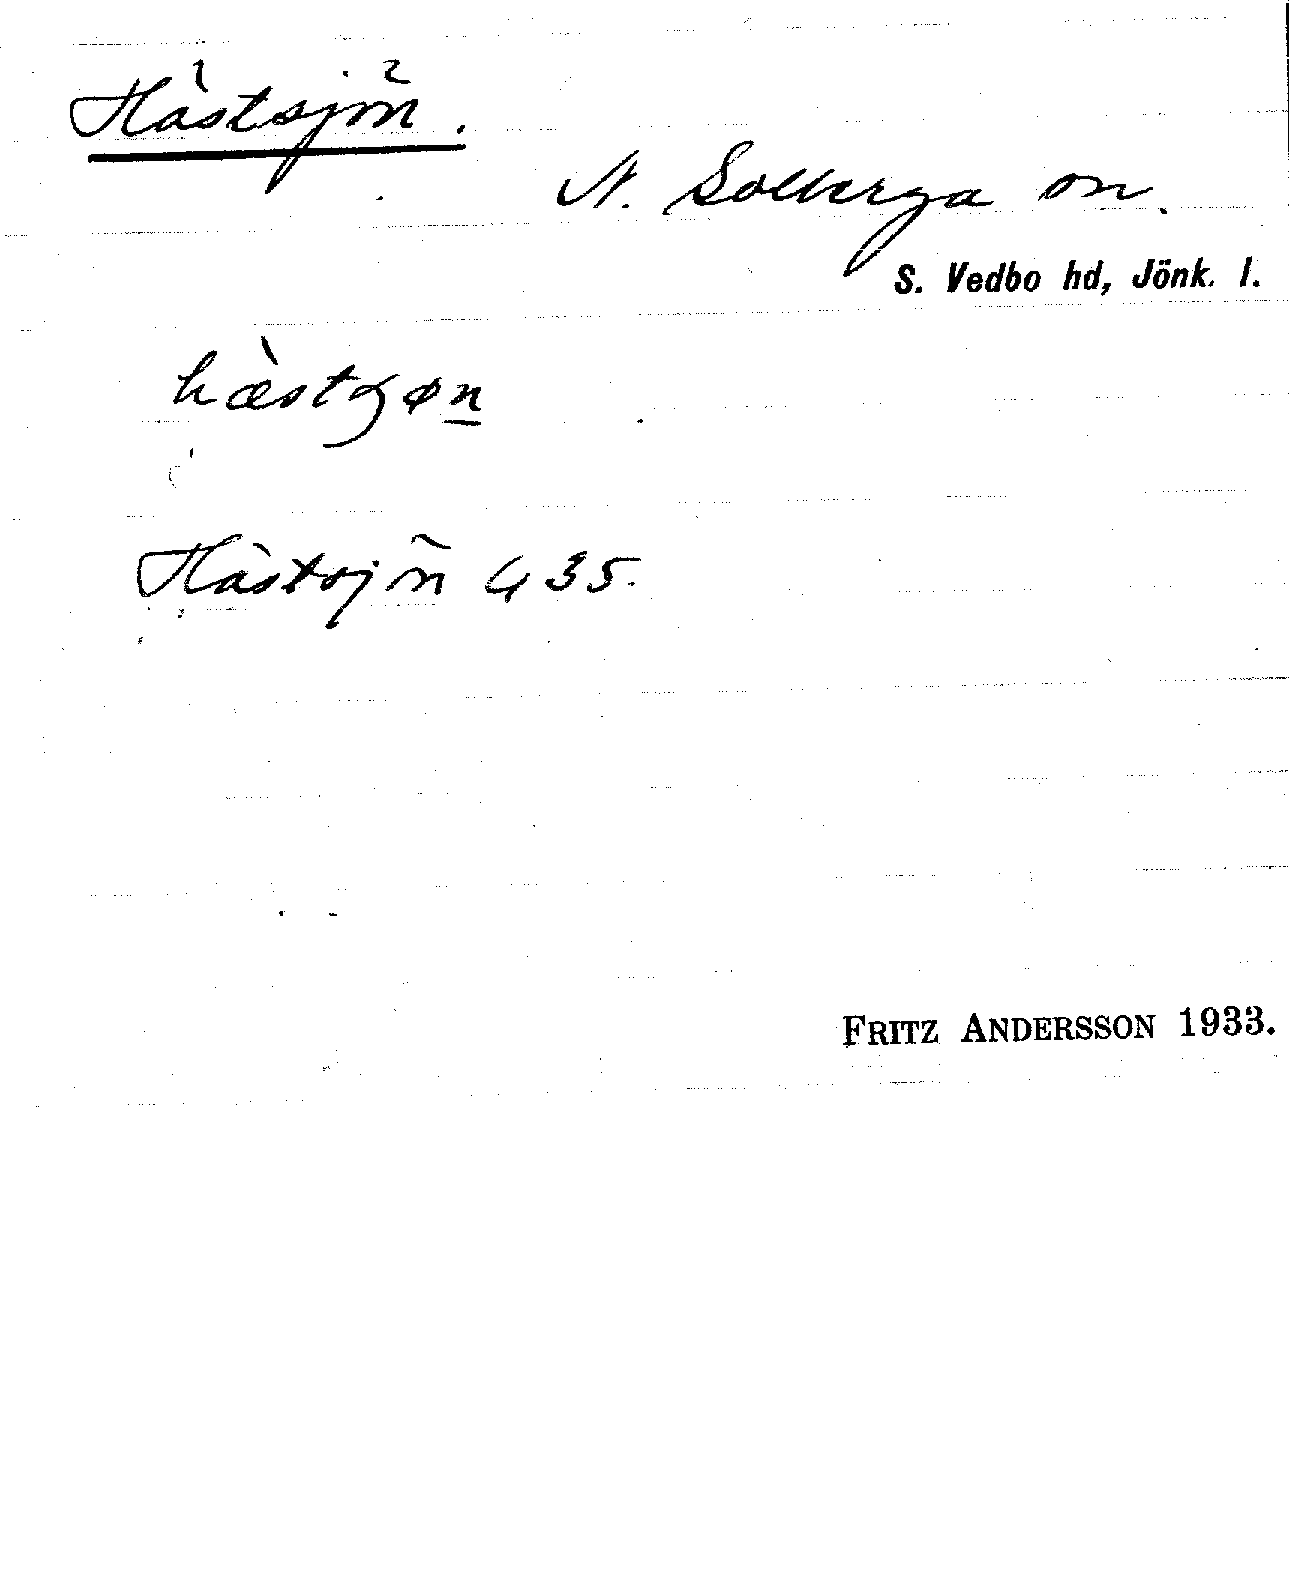 Hästsjön.
N. Solberga sn.
S. Vedbo hd, Jönk. l.
Hästsjön G 35.
FRITZ ANDERSSON 1933.